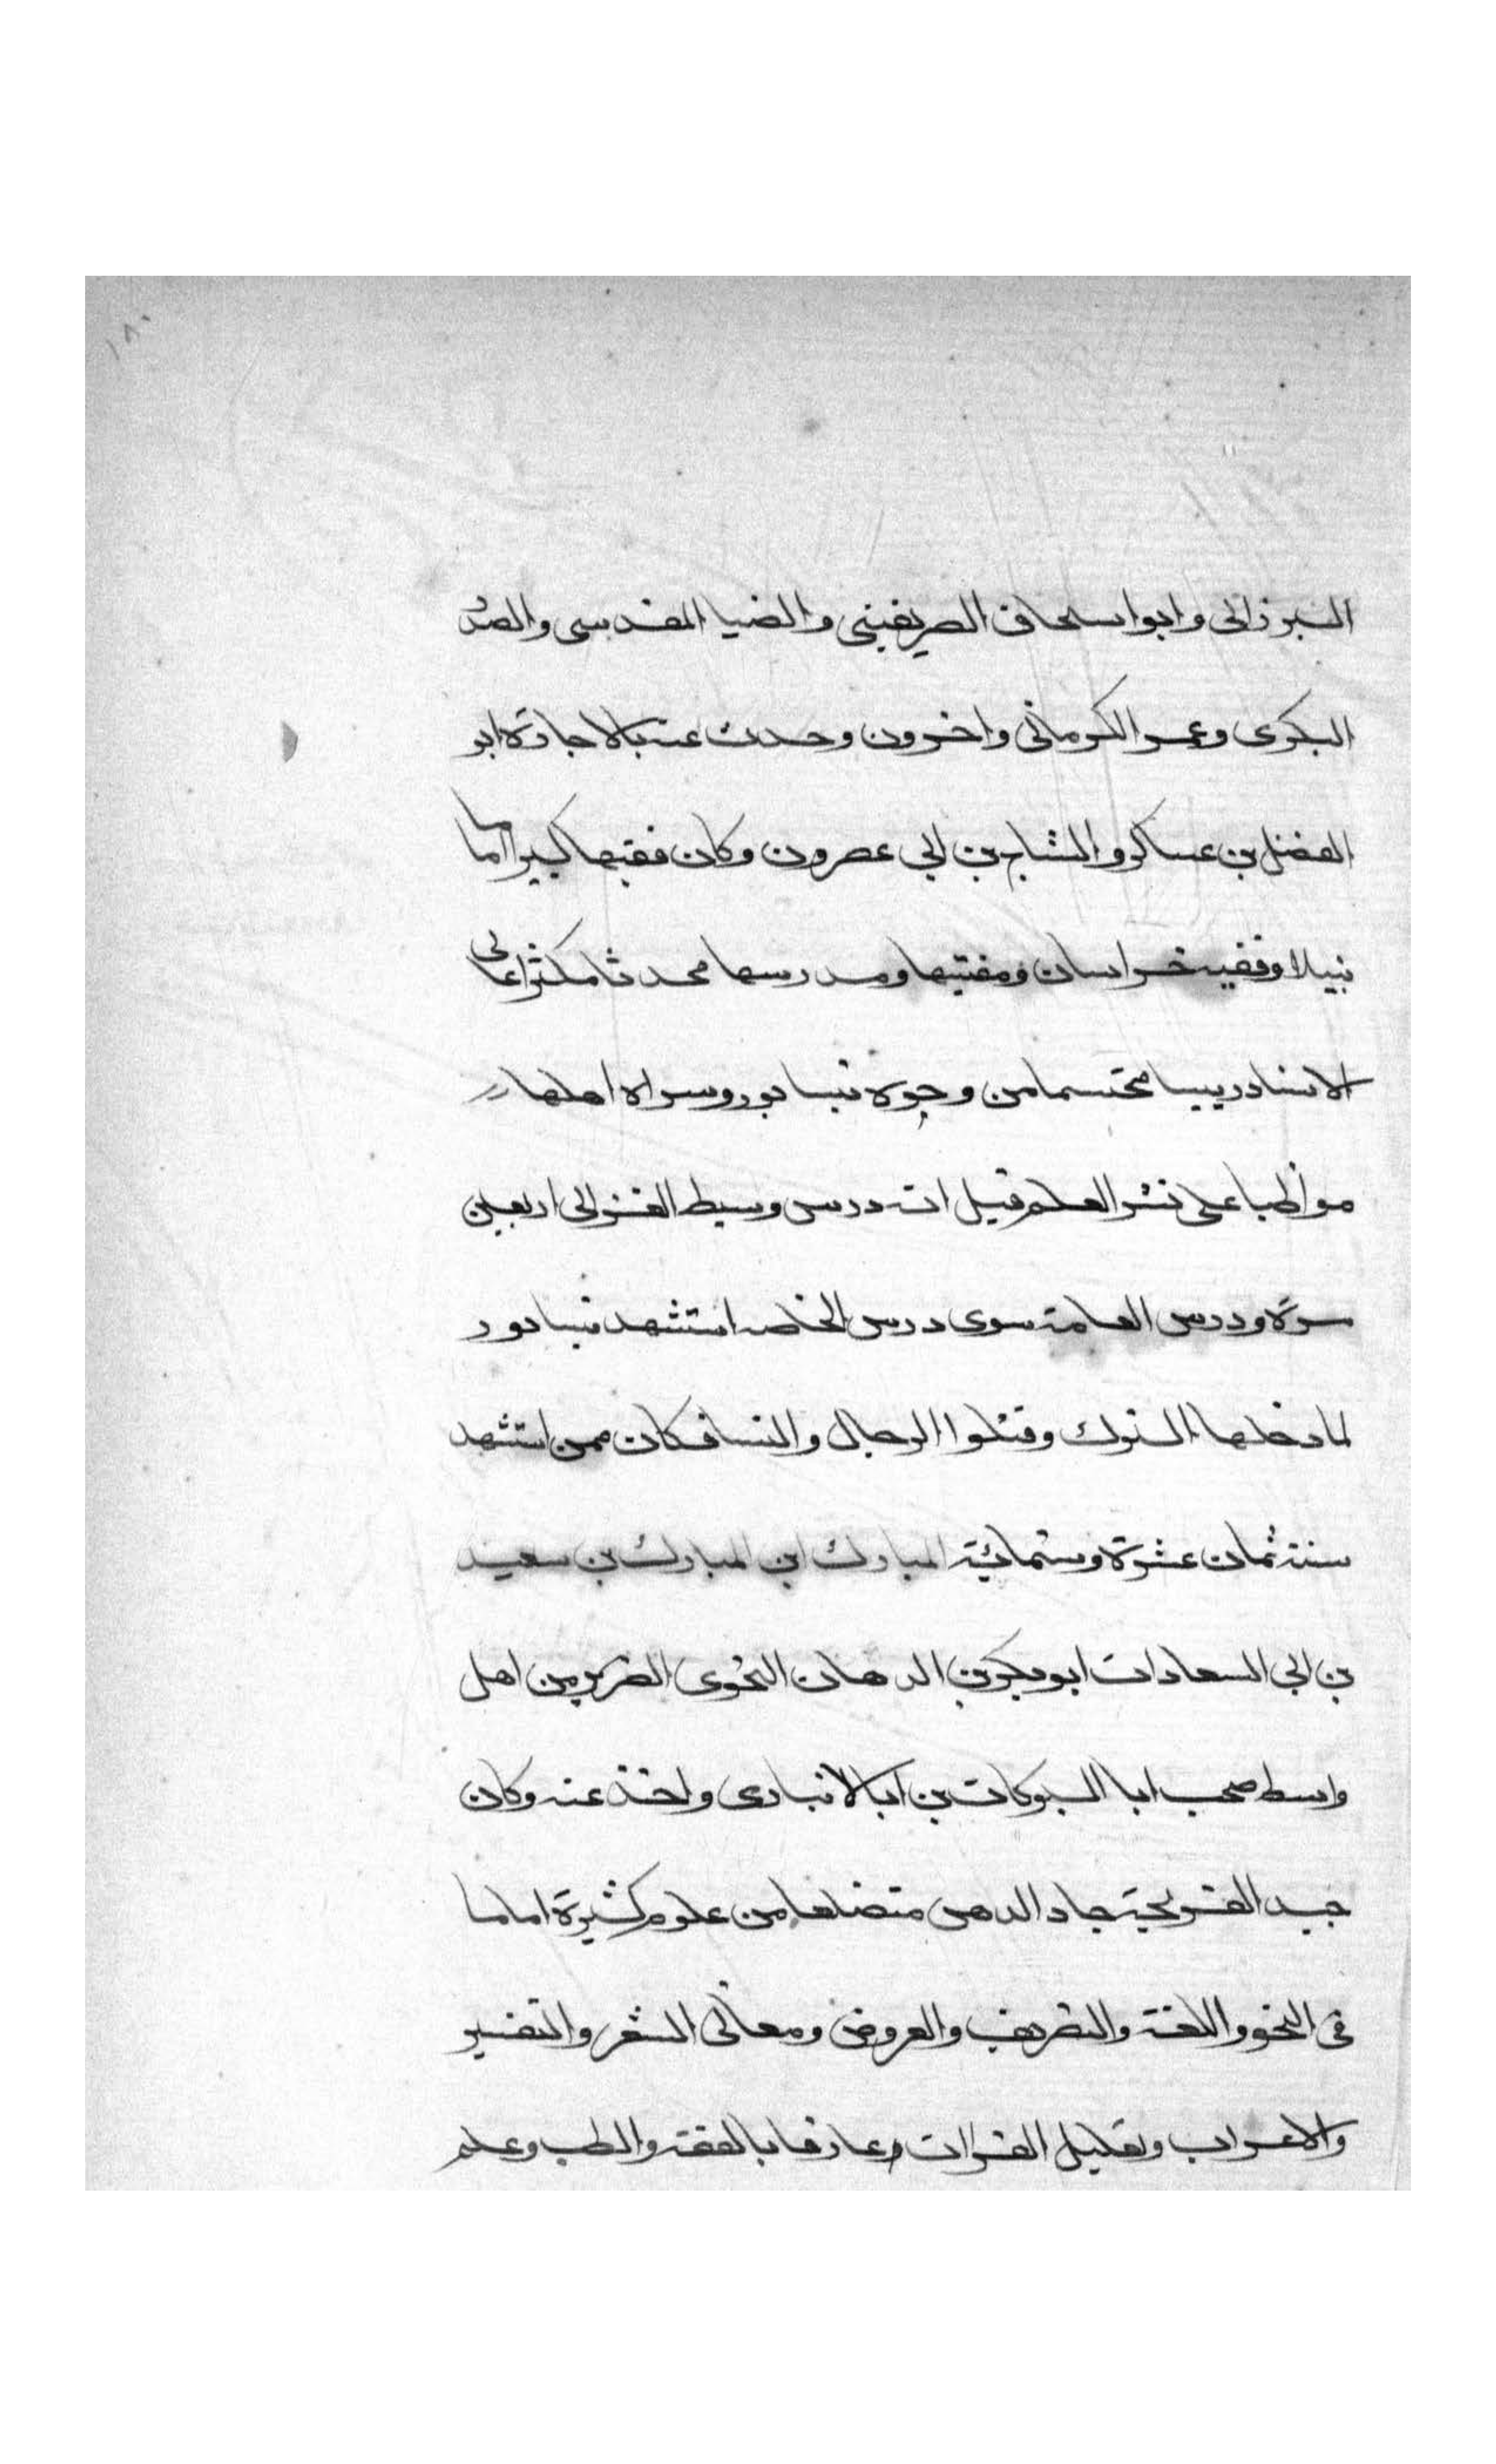 ١٨٠
البرزالى وابو اسحاق الصريفينى والضيا المقدسى والصدر
البكرى وعمر الكرمانى واخرون وحدث عنه بالاجازة ابو
الفضل بن عساكر والشاب بن ابى عصرون وكان فقيها كبيرا اماما
نبيلا وفقيه خراسان ومفتيها ومدرسها محدثا مكثرا عالى
الاسناد رييسا محتسما من وجوه نيسابور وسراة اهلها
مواظبا على نشر العلم قيل انه درس وسيط الغزالى اربعين
مرة ودرس العامة سوى درس الخاصه استشهد نيسابور
لما دخلها الترك وقتلوا الرجال والنسا فكان ممن استشهد
سنة ثمان عشرة وستمائية المبارك ابن المبارك بن سعيد
بن ابى السعادات ابو بكر بن الدهان النحوى الضرير من اهل
واسط صحب ابا البركات بن الانبارى واخذ عنه وكان
جيد القريحة حاد الذهن متضلعا من علوم كثيرة اماما
فى النحو واللغة والتصريف والعروض ومعانى الشعر والتفسير
والاعراب وتعليل القراات وعارفا بالفقه والطب وعلم